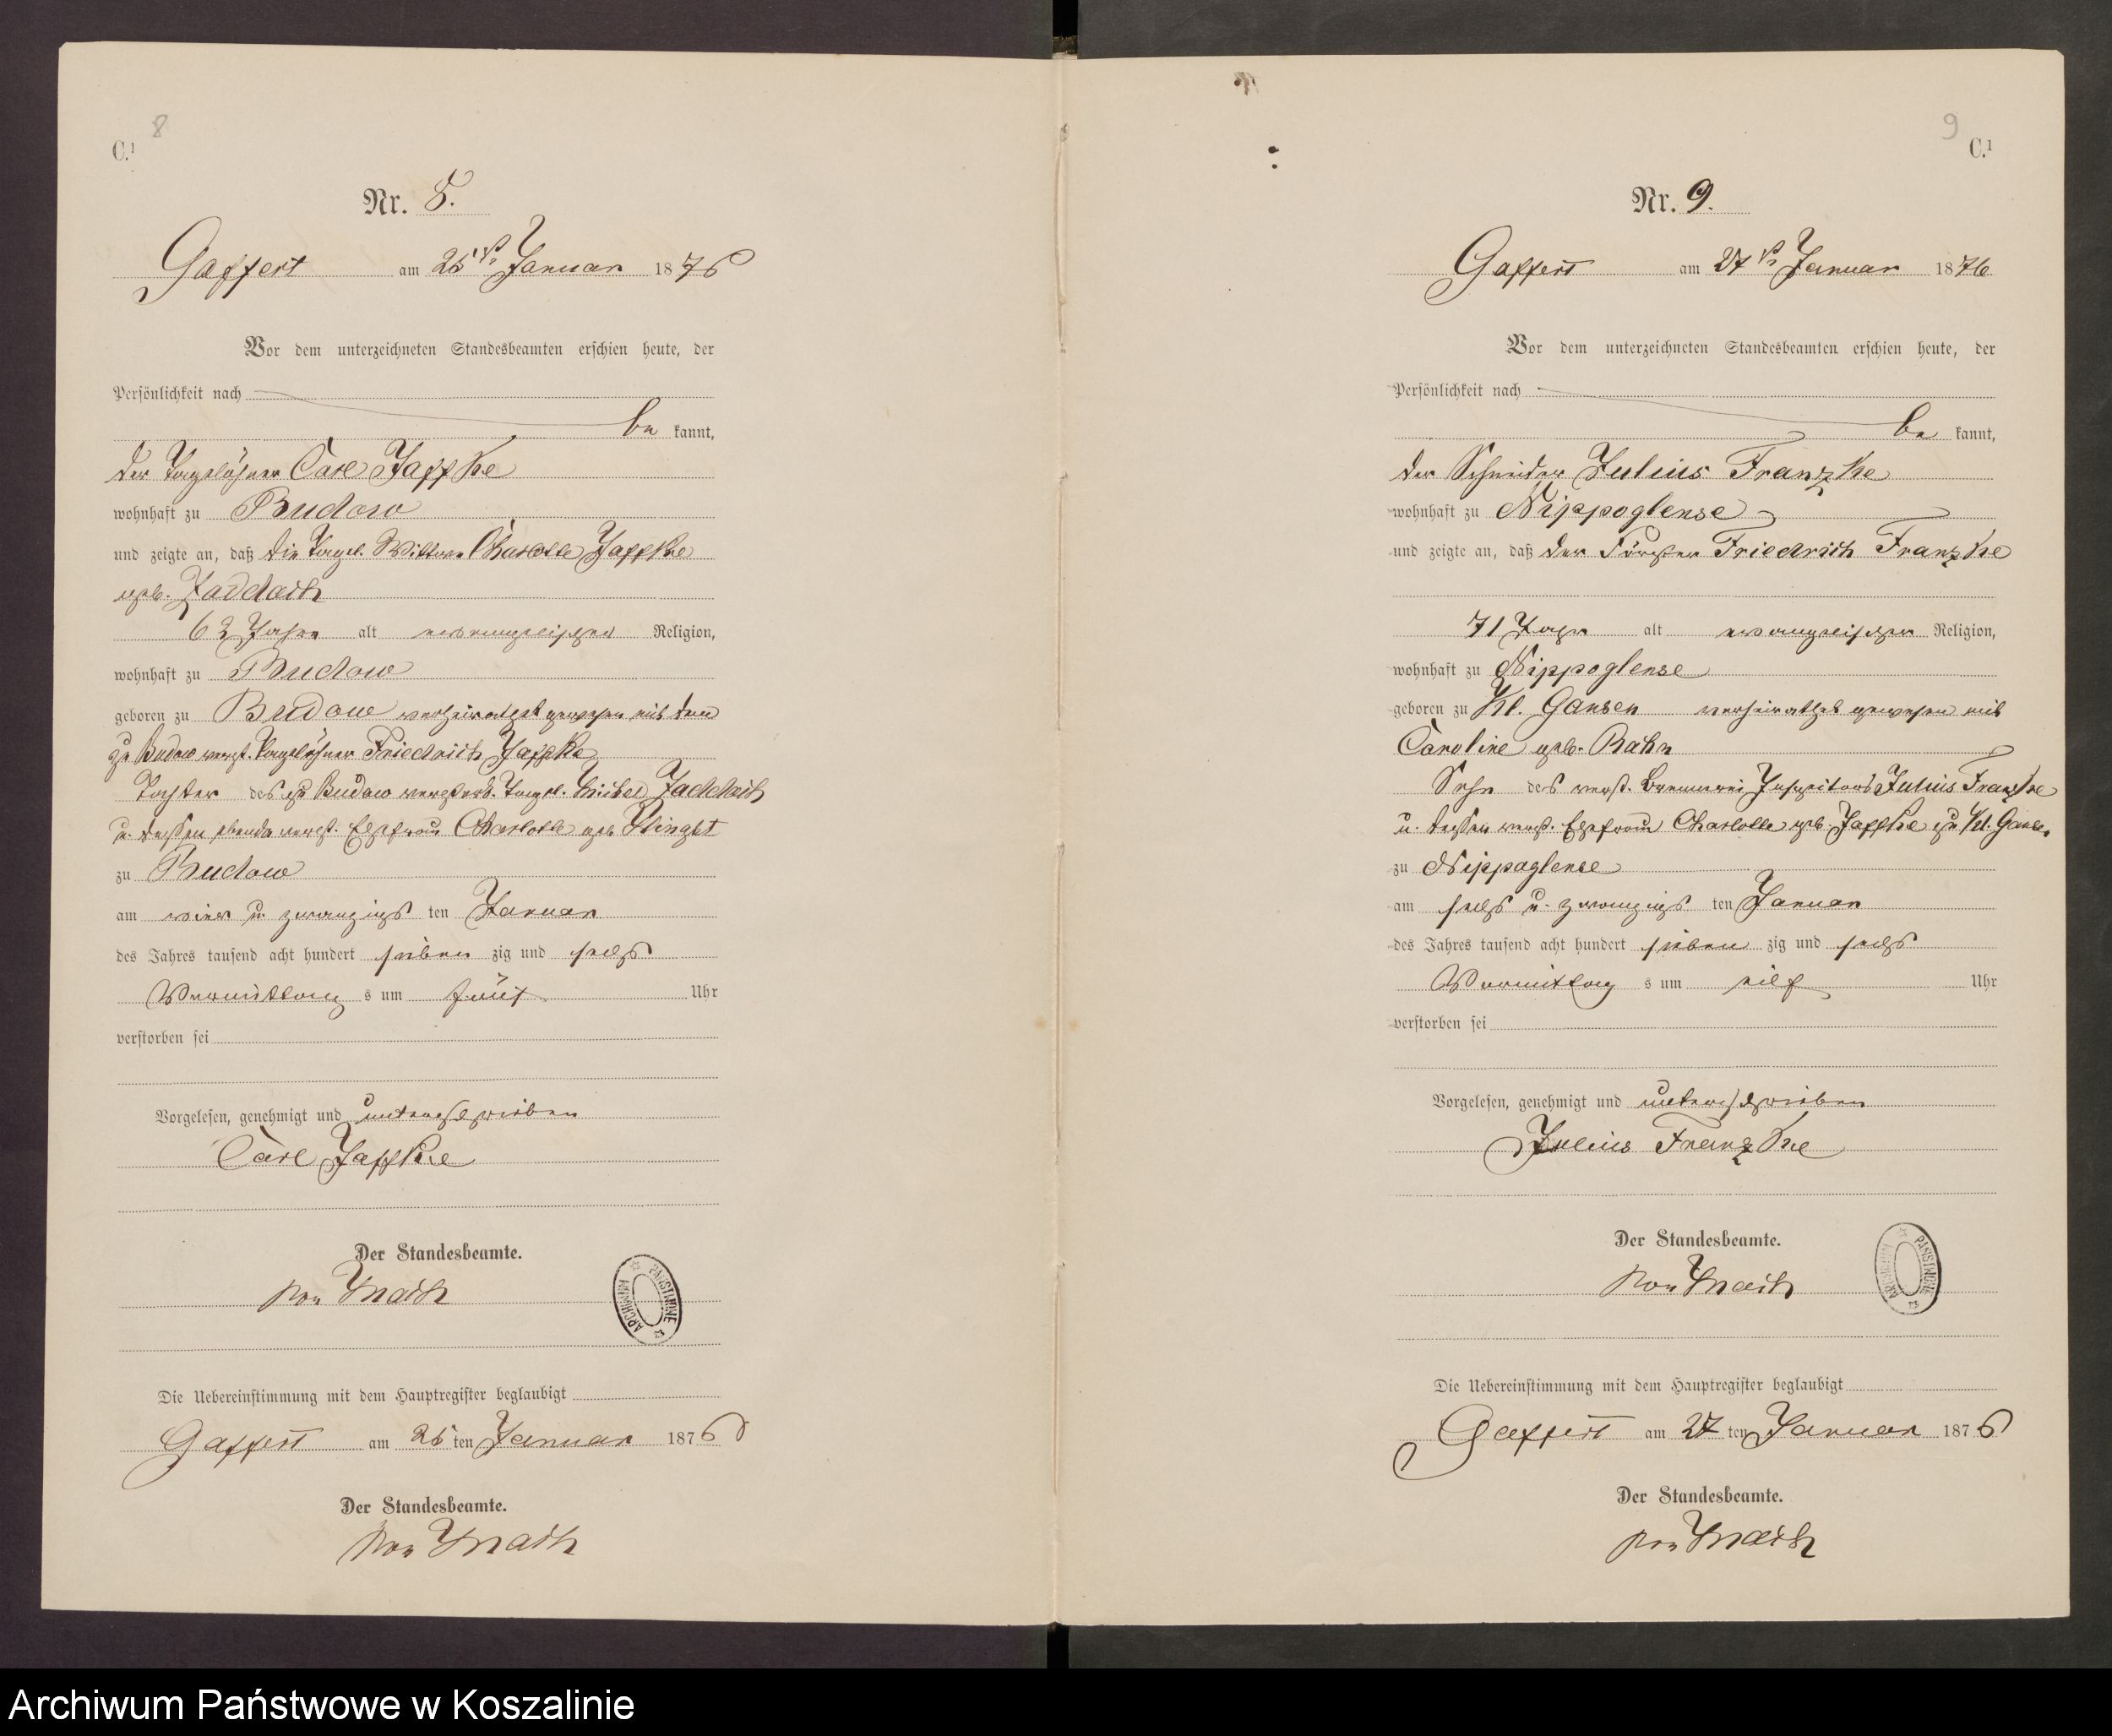 8
C.1
Nr. 8.
Gaffert am 25ten Januar 1876
Vor dem unterzeichneten Standesbeamten erschien heute, der
Persönlichkeit nach
be kannt,
der Tagelöhner Carl Jaffke
wohnhaft zu Budow
und zeigte an, daß die Tagel. Wittwe Charlotte Jaffke
geb. Zaddach
62 Jahre alt evangelischer Religion,
wohnhaft zu Budow
geboren zu Budow verheirathet gewesen mit dem
zu Budow verst. Tagelöhner Friedrich Jaffke
Tochter des zu Budow verstorb. Tagel. Zaddach
u. dessen ebenda verst. Ehefrau Charlotte geb.
zu Budow
am vier u. zwanzigs ten Januar
des Jahres tausend acht hundert sieben zig und sechs
Vormittag s um fünf Uhr
verstorben sei
Vorgelesen, genehmigt und unterschrieben
Carl Jaffke
Der Standesbeamte.
von
ARCHIWUM PAŃSTWOWE
Die Uebereinstimmung mit dem Hauptregister beglaubigt
Gaffert am 25 ten Januar 1876
Der Standesbeamte.
von
9
C.1
Nr. 9.
Gaffert am 27ten Januar 1876
Vor dem unterzeichneten Standesbeamten erschien heute, der
Persönlichkeit nach
be kannt,
der Schneider Julius Franzke
wohnhaft zu Nippoglense
und zeigte an, daß der Förster Friedrich Franzke
71 Jahr alt evangelischer Religion,
wohnhaft zu Nippoglense
geboren zu Kl. Gansen verheirathet gewesen mit
Caroline geb. Rahn
Sohn des verst. Brennerei Inspektors Julius Franzke
u. dessen verst. Ehefrau Charlotte geb. Jaffke zu Kl. Gansen
zu Nippoglense
am sechs u. zwanzigs ten Januar
des Jahres tausend acht hundert sieben zig und sechs
Vormittag s um eilf Uhr
verstorben sei
Vorgelesen, genehmigt und unterschrieben
Julius Franzke
Der Standesbeamte.
von
ARCHIWUM PAŃSTWOWE
Die Uebereinstimmung mit dem Hauptregister beglaubigt
Gaffert am 27 ten Januar 1876
Der Standesbeamte.
von
Archiwum Państwowe w Koszalinie